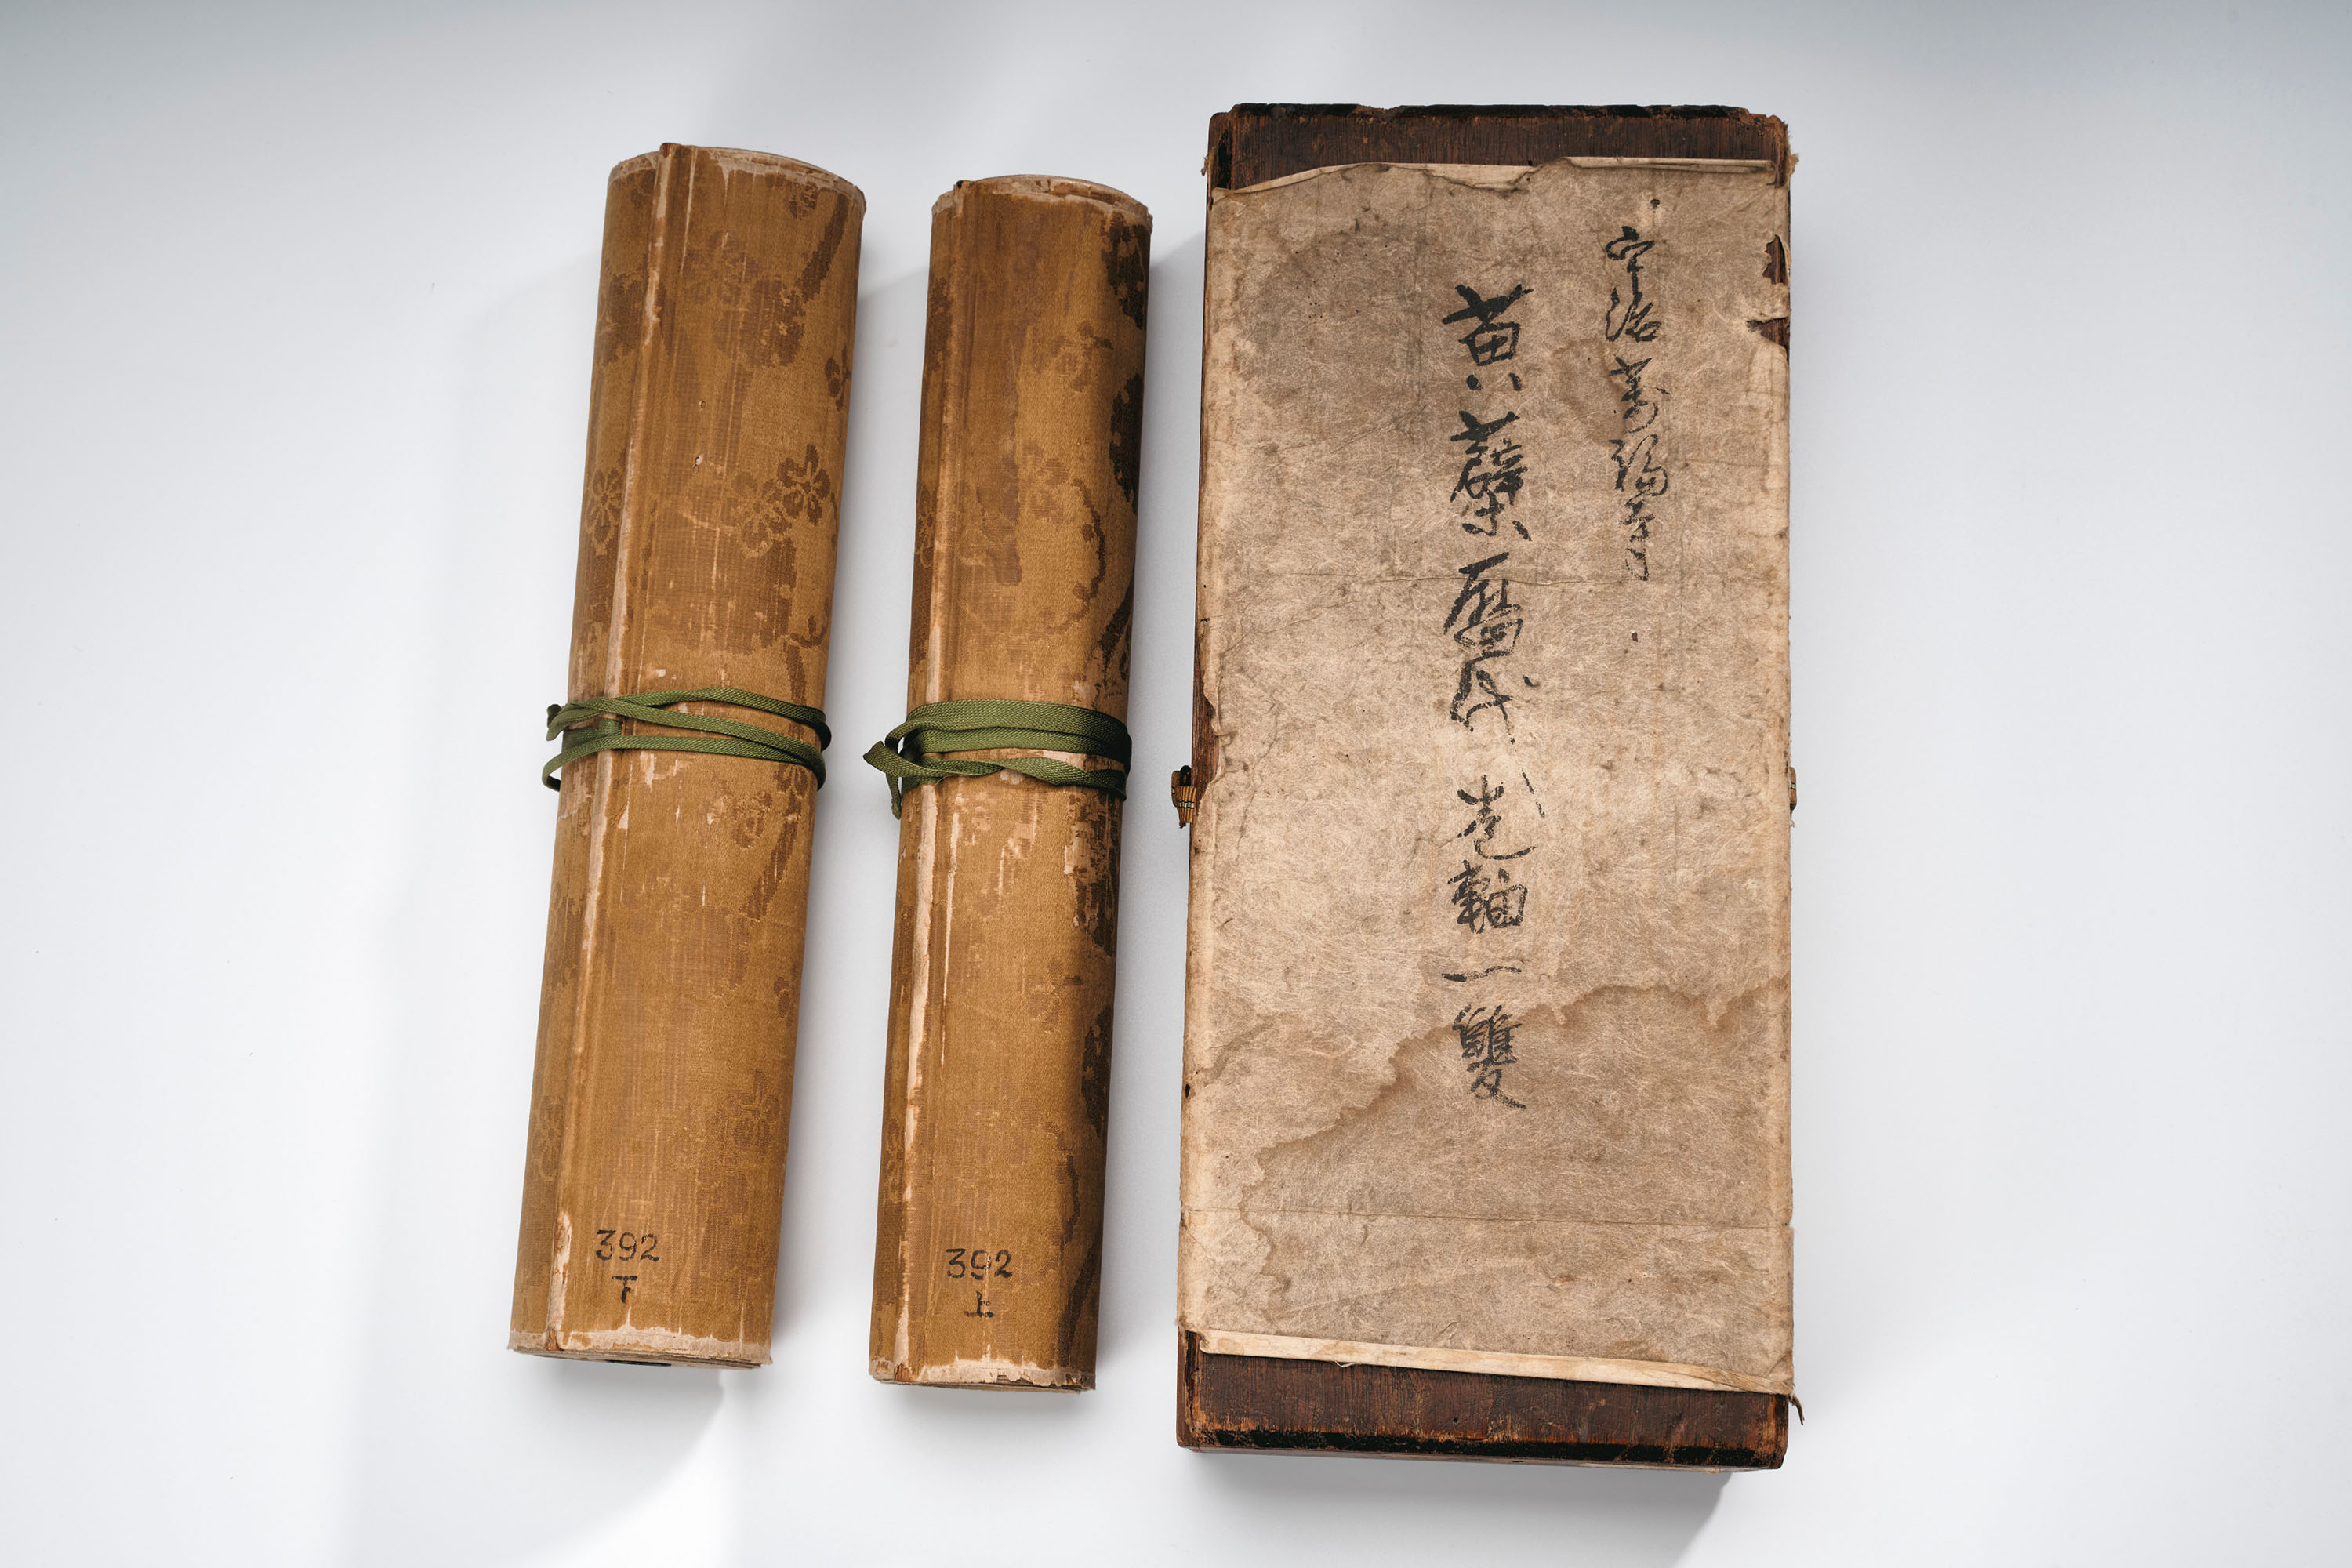 宇治 萬福寺
黄檗歴代巻軸一雙
392
上
392
下